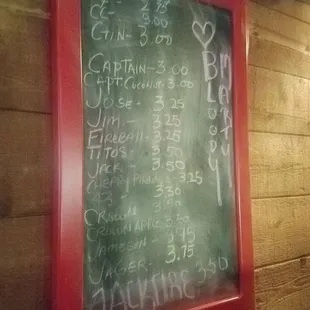 CC 3.00
CTIN - 3.00
CAPTAIN - 3.00
CAPT COCONUT - 3.00
JOSE - 3.25
JIM - 3.25
FIREBALL - 3.25
TITOS - 3.50
JACK - 3.50
3.25
3.50
CROWN
CROWN APPLE
JAMESON - 3.75
JAGER - 3.75
JACKFIRE 3.50
BLOODY
MARY